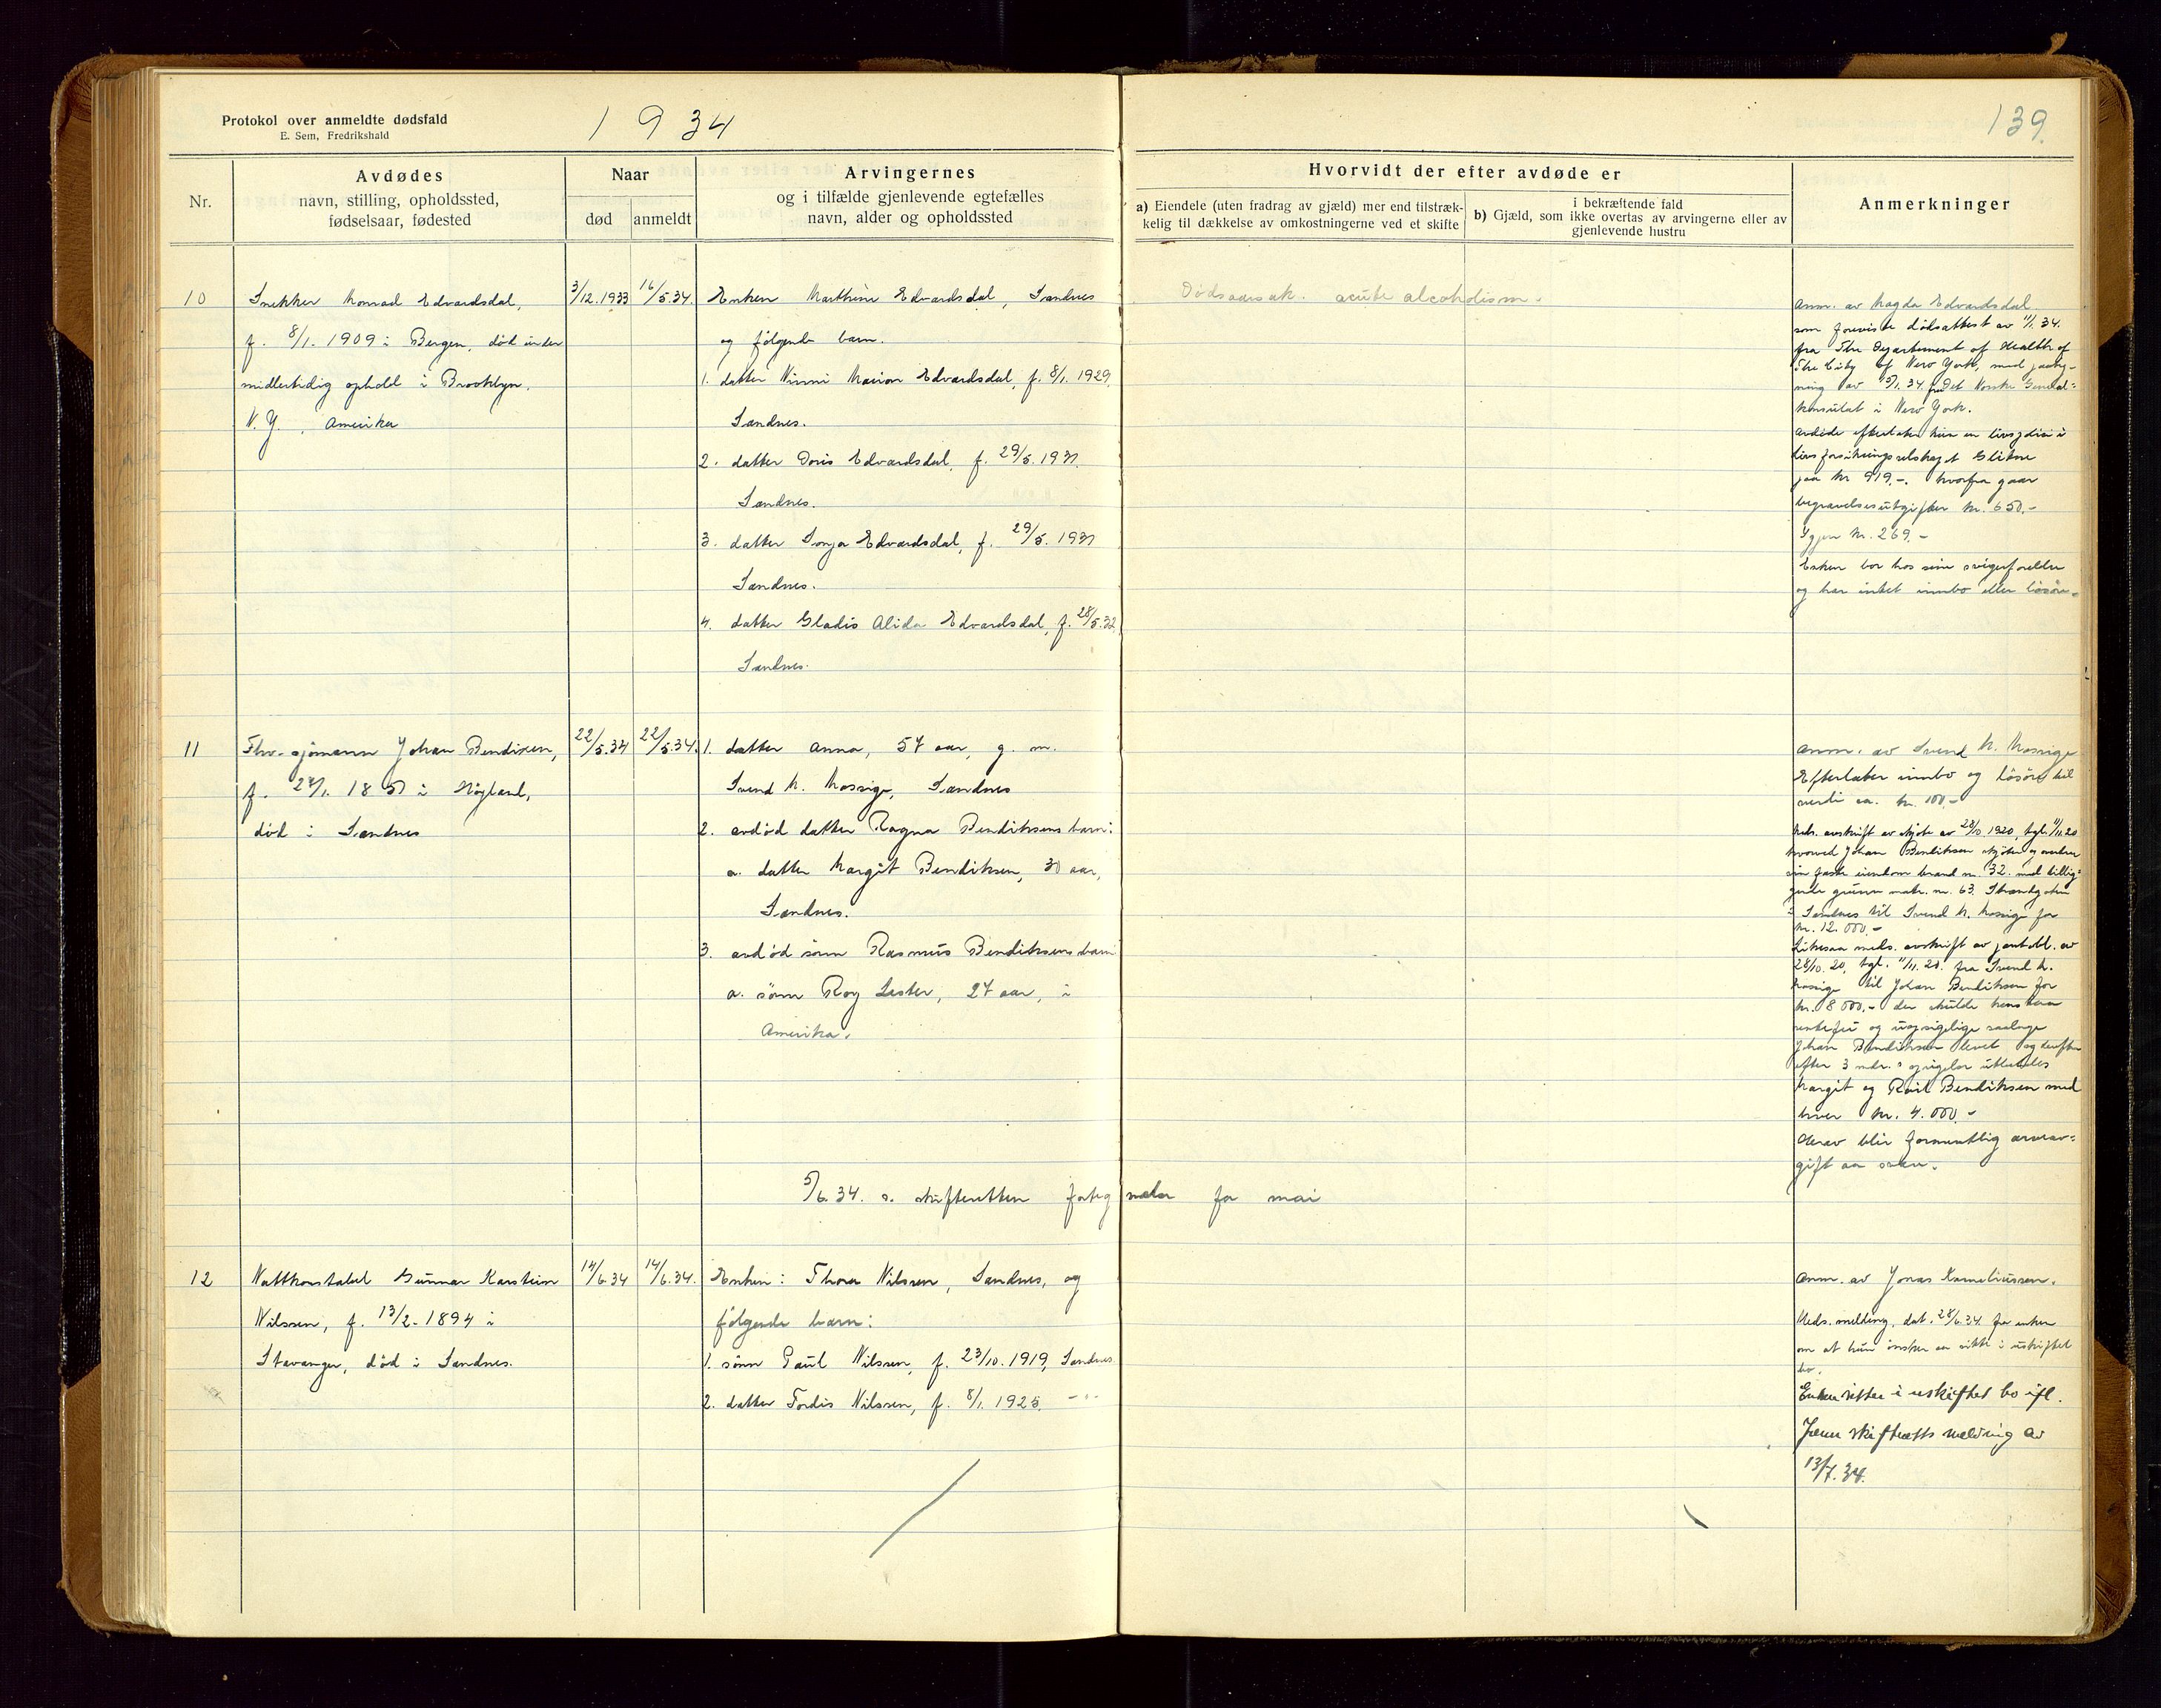 Protokol over anmeldte dødsfald
E. Sem, Fredrikshald
1934
139.
Nr.
Avdødes
navn, stilling, opholdssted,
fødselsaar, fødested
Naar
død
anmeldt
Arvingernes
og i tilfælde gjenlevende egtefælles
navn, alder og opholdssted
Hvorvidt der efter avdøde er
a) Eiendele (uten fradrag av gjæld) mer end tilstræk-
kelig til dækkelse av omkostningerne ved et skifte
i bekræftende fald
b) Gjæld, som ikke overtas av arvingerne eller av
gjenlevende hustru
Anmerkninger
10
Snekker Konrad Edvardsdal,
f. 8/1. 1909 i Bergen, död under
midlertidig ophold i Brooklyn,
N. Y., Amerika
3/12.1933
16/5.34.
Enken Marthine Edvardsdal, Sandnes
og følgende barn.
1. datter Winni Marion Edvardsdal, f. 8/1. 1929,
Sandnes.
2. datter Doris Edvardsdal, f. 29/5. 1931
Sandnes.
3. datter Sonja Edvardsdal, f. 29/5. 1931
Sandnes.
4. datter Gladis Alida Edvardsdal, f. 28/5.32,
Sandnes.
Dödsaarsak: acute alcoholism.
Anm. av Magda Edvardsdal
som foreviste dödsattest av 11/1. 34.
fra The Departement of Health of
The City of New York, med paateg-
ning av 15/1.34. fra Det Norske General-
konsulat i New York.
Avdöde efterlater kun en livspolise i
livsforsikringsselskapet Glitne
paa kr. 919.-. hvorfra gaar
begravelsesutgifter kr. 650.-
Igjen kr. 269.-
Enken bor hos sine svigerforeldre
og har intet innbo eller lösöre.
11
Fhv. sjömann Johan Bendixen,
f. 27/1. 1850 i Högland,
död i Sandnes
22/5.34
22/5.34.
1. datter Anna, 57 aar, g. m.
Svend K. Mossige, Sandnes
2. avdöd datter Ragna Bendiksens barn:
a. datter Margit Bendiksen, 30 aar,
Sandnes.
3. avdöd sönn Rasmus Bendiksens barn
a. sönn Roy Lester, 27 aar, i
Amerika.
Anm. av Svend K. Mossige
Efterlater innbo og lösöre til
verdi ca. kr. 100.-
Meds. avskrift av skjöte av 28/10 1920, tgl. 11/11.20
hvorved Johan Bendiksen skjöter og overdrar
sin faste eiendom brand nr. 32. med tillig-
gende grunn matr. nr. 63. Strandgaten
i Sandnes til Svend K. Mossige for
kr. 12.000.-
Likesaa meds. avskrift av pantobl. av
28/10.20, tgl. 11/11.20. fra Svend K.
Mossige til Johan Bendiksen for
kr. 8000.- der skulde henstaa
rentefri og uopsigelige saalenge
Johan Bendiksen levet og derefter
efter 3 mdr.s opsigelse utbetales
Margit og Roul Bendiksen med
hver kr. 4.000.-
Derav blir formentlig arveav-
gift aa svare.
5/6.34. s. skifteretten fortegnelse for mai
12
Nattkonstabel Gunnar Karstein
Nilssen, f. 13/2. 1894 i
Stavanger, död i Sandnes.
14/6.34
14/6.34.
Enken: Thora Nilssen, Sandnes, og
følgende barn:
1. sönn Paul Nilssen, f. 23/10. 1919, Sandnes
2. datter Tordis Nilssen, f. 8/1. 1925. -"-
Anm. av Jonas Korneliussen.
Meds. melding, dat. 28/6.34. fra enken
om at hun önsker aa sitte i uskiftet
bo.
Enken sitter i uskiftet bo ifl.
Jæren skifteretts melding av
13/7.34.